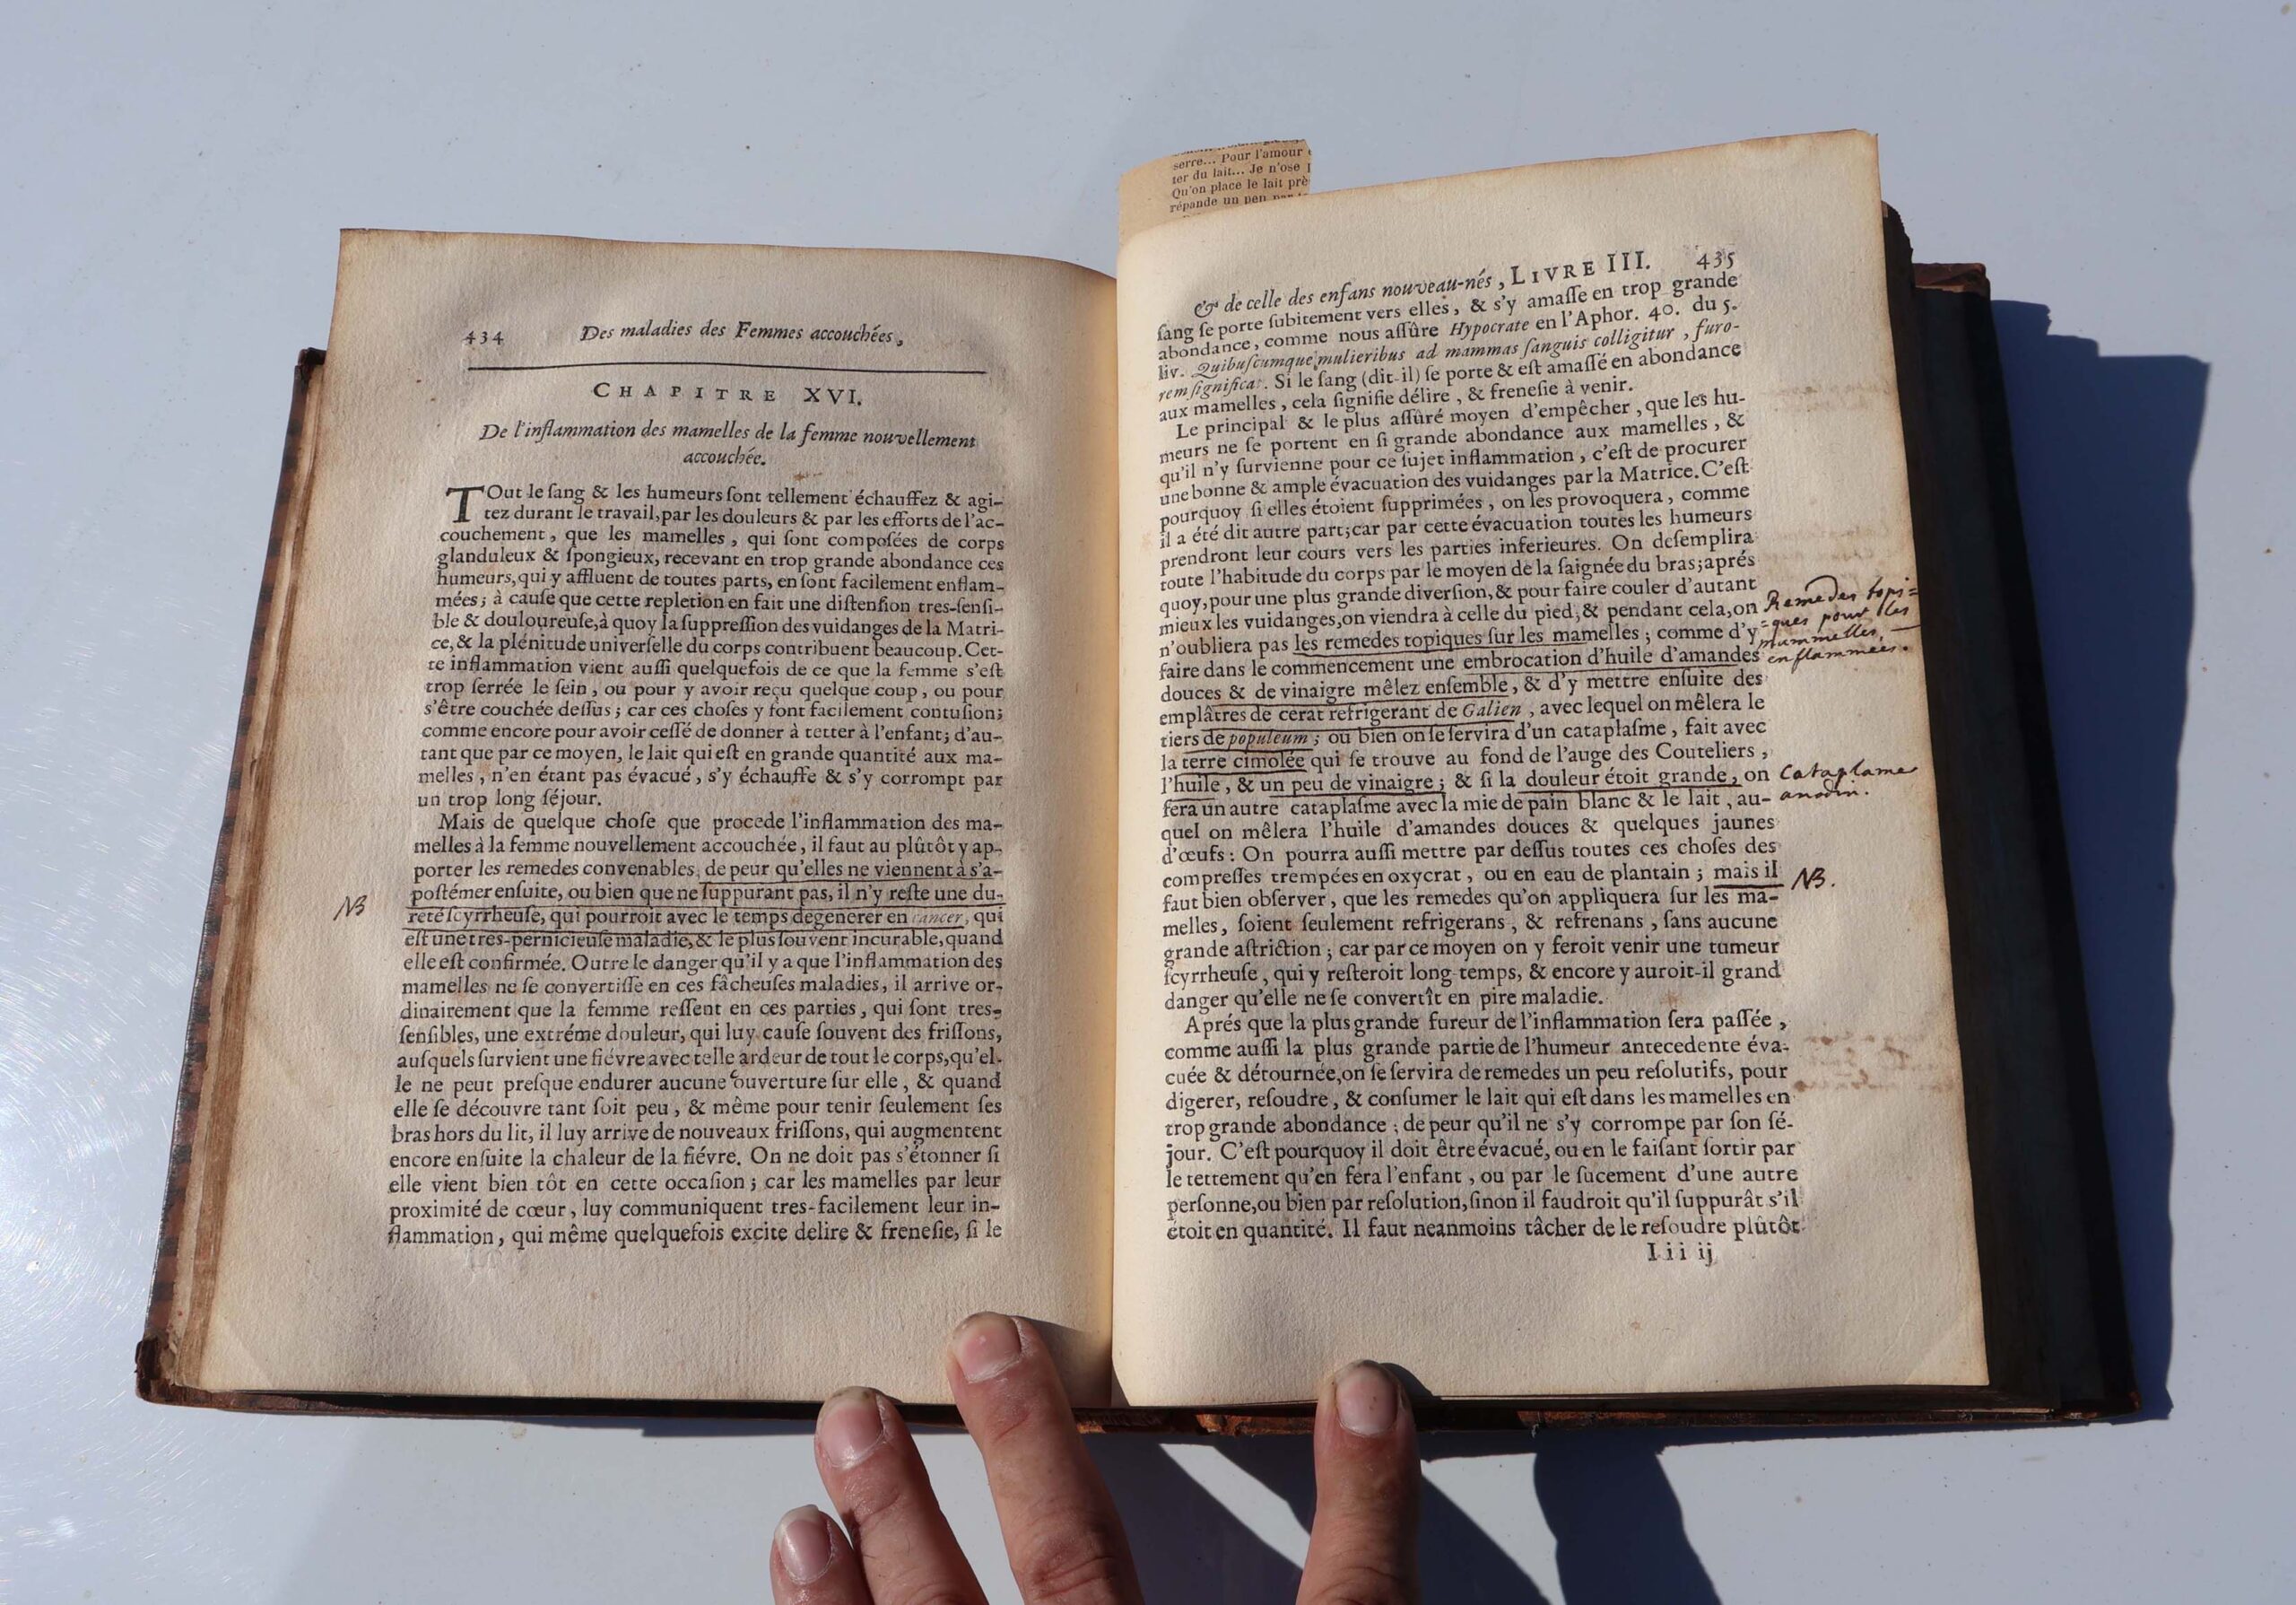 434 Des maladies des Femmes accouchées,
CHAPITRE XVI.
De l'inflammation des mamelles de la femme nouvellement
accouchée.
TOut le ſang & les humeurs ſont tellement échauffez & agi-
tez durant le travail, par les douleurs & par les efforts de l'ac-
couchement, que les mamelles, qui ſont compoſées de corps
glanduleux & ſpongieux, recevant en trop grande abondance ces
humeurs, qui y affluent de toutes parts, en ſont facilement enflam-
mées; à cauſe que cette repletion en fait une diſtenſion tres-ſenſi-
ble & douloureuſe, à quoy la ſuppreſſion des vuidanges de la Matri-
ce, & la plénitude univerſelle du corps contribuent beaucoup. Cet-
te inflammation vient auſſi quelquefois de ce que la femme s'eſt
trop ſerrée le ſein, ou pour y avoir reçu quelque coup, ou pour
s'être couchée deſſus; car ces choſes y font facilement contuſion;
comme encore pour avoir ceſſé de donner à tetter à l'enfant; d'au-
tant que par ce moyen, le lait qui eſt en grande quantité aux ma-
melles, n'en étant pas évacué, s'y échauffe & s'y corrompt par
un trop long ſéjour.
Mais de quelque choſe que procede l'inflammation des ma-
melles à la femme nouvellement accouchée, il faut au plûtôt y ap-
porter les remedes convenables, de peur qu'elles ne viennent à s'a-
poſtémer enſuite, ou bien que ne ſuppurant pas, il n'y reſte une du-
NB reté ſcyrrheuſe, qui pourroit avec le temps degenerer en cancer, qui
eſt une tres-pernicieuſe maladie, & le plus ſouvent incurable, quand
elle eſt confirmée. Outre le danger qu'il y a que l'inflammation des
mamelles ne ſe convertiſſe en ces fâcheuſes maladies, il arrive or-
dinairement que la femme reſſent en ces parties, qui ſont tres-
ſenſibles, une extréme douleur, qui luy cauſe ſouvent des friſſons,
auſquels ſurvient une fiévre avec telle ardeur de tout le corps, qu'el-
le ne peut preſque endurer aucune ouverture ſur elle, & quand
elle ſe découvre tant ſoit peu, & même pour tenir ſeulement ſes
bras hors du lit, il luy arrive de nouveaux friſſons, qui augmentent
encore enſuite la chaleur de la fiévre. On ne doit pas s'étonner ſi
elle vient bien tôt en cette occaſion; car les mamelles par leur
proximité de cœur, luy communiquent tres-facilement leur in-
flammation, qui même quelquefois excite delire & freneſie, ſi le
serre... Pour l'amour
ter du lait... Je n'ose
Qu'on place le lait prè
répande un peu
& de celle des enfans nouveau-nés, LIVRE III. 435
ſang ſe porte ſubitement vers elles, & s'y amaſſe en trop grande
abondance, comme nous aſſûre Hypocrate en l'Aphor. 40. du 5.
liv. Quibuſcumque mulieribus ad mammas ſanguis colligitur, furo-
rem ſignificat. Si le ſang (dit-il) ſe porte & eſt amaſſé en abondance
aux mamelles, cela ſignifie délire, & freneſie à venir.
Le principal & le plus aſſûré moyen d'empêcher, que les hu-
meurs ne ſe portent en ſi grande abondance aux mamelles, &
qu'il n'y ſurvienne pour ce ſujet inflammation, c'eſt de procurer
une bonne & ample évacuation des vuidanges par la Matrice. C'eſt
pourquoy ſi elles étoient ſupprimées, on les provoquera, comme
il a été dit autre part; car par cette évacuation toutes les humeurs
prendront leur cours vers les parties inferieures. On deſemplira
toute l'habitude du corps par le moyen de la ſaignée du bras; aprés
quoy, pour une plus grande diverſion, & pour faire couler d'autant
mieux les vuidanges, on viendra à celle du pied, & pendant cela, on
n'oubliera pas les remedes topiques ſur les mamelles; comme d'y
faire dans le commencement une embrocation d'huile d'amandes
douces & de vinaigre mêlez enſemble, & d'y mettre enſuite des
emplâtres de cerat refrigerant de Galien, avec lequel on mêlera le
tiers de populeum; ou bien on ſe ſervira d'un cataplaſme, fait avec
la terre cimolée qui ſe trouve au fond de l'auge des Couteliers,
l'huile, & un peu de vinaigre; & ſi la douleur étoit grande, on
fera un autre cataplaſme avec la mie de pain blanc & le lait, au-
quel on mêlera l'huile d'amandes douces & quelques jaunes
d'œufs: On pourra auſſi mettre par deſſus toutes ces choſes des
compreſſes trempées en oxycrat, ou en eau de plantain; mais il
faut bien obſerver, que les remedes qu'on appliquera ſur les ma-
melles, ſoient ſeulement refrigerans, & refrenans, ſans aucune
grande aſtriction; car par ce moyen on y feroit venir une tumeur
ſcyrrheuſe, qui y reſteroit long-temps, & encore y auroit-il grand
danger qu'elle ne ſe convertît en pire maladie.
Aprés que la plus grande fureur de l'inflammation ſera paſſée,
comme auſſi la plus grande partie de l'humeur antecedente éva-
cuée & détournée, on ſe ſervira de remedes un peu reſolutifs, pour
digerer, reſoudre, & conſumer le lait qui eſt dans les mamelles en
trop grande abondance; de peur qu'il ne s'y corrompe par ſon ſé-
jour. C'eſt pourquoy il doit être évacué, ou en le faiſant ſortir par
le tettement qu'en fera l'enfant, ou par le ſucement d'une autre
perſonne, ou bien par reſolution, ſinon il faudroit qu'il ſuppurât s'il
étoit en quantité. Il faut neanmoins tâcher de le reſoudre plûtôt
Iii ij
Remedes topi=
=ques pour les
mammelles
enflammées.
Cataplame
anodin.
NB.